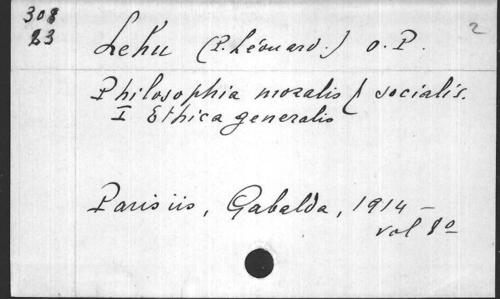 308
23
Lehu (P. Léonard.) O. P.
2
Philosophia moralis & socialis.
I Ethica generalis
Parisiis, Gabalda, 1914 –
vol 8º